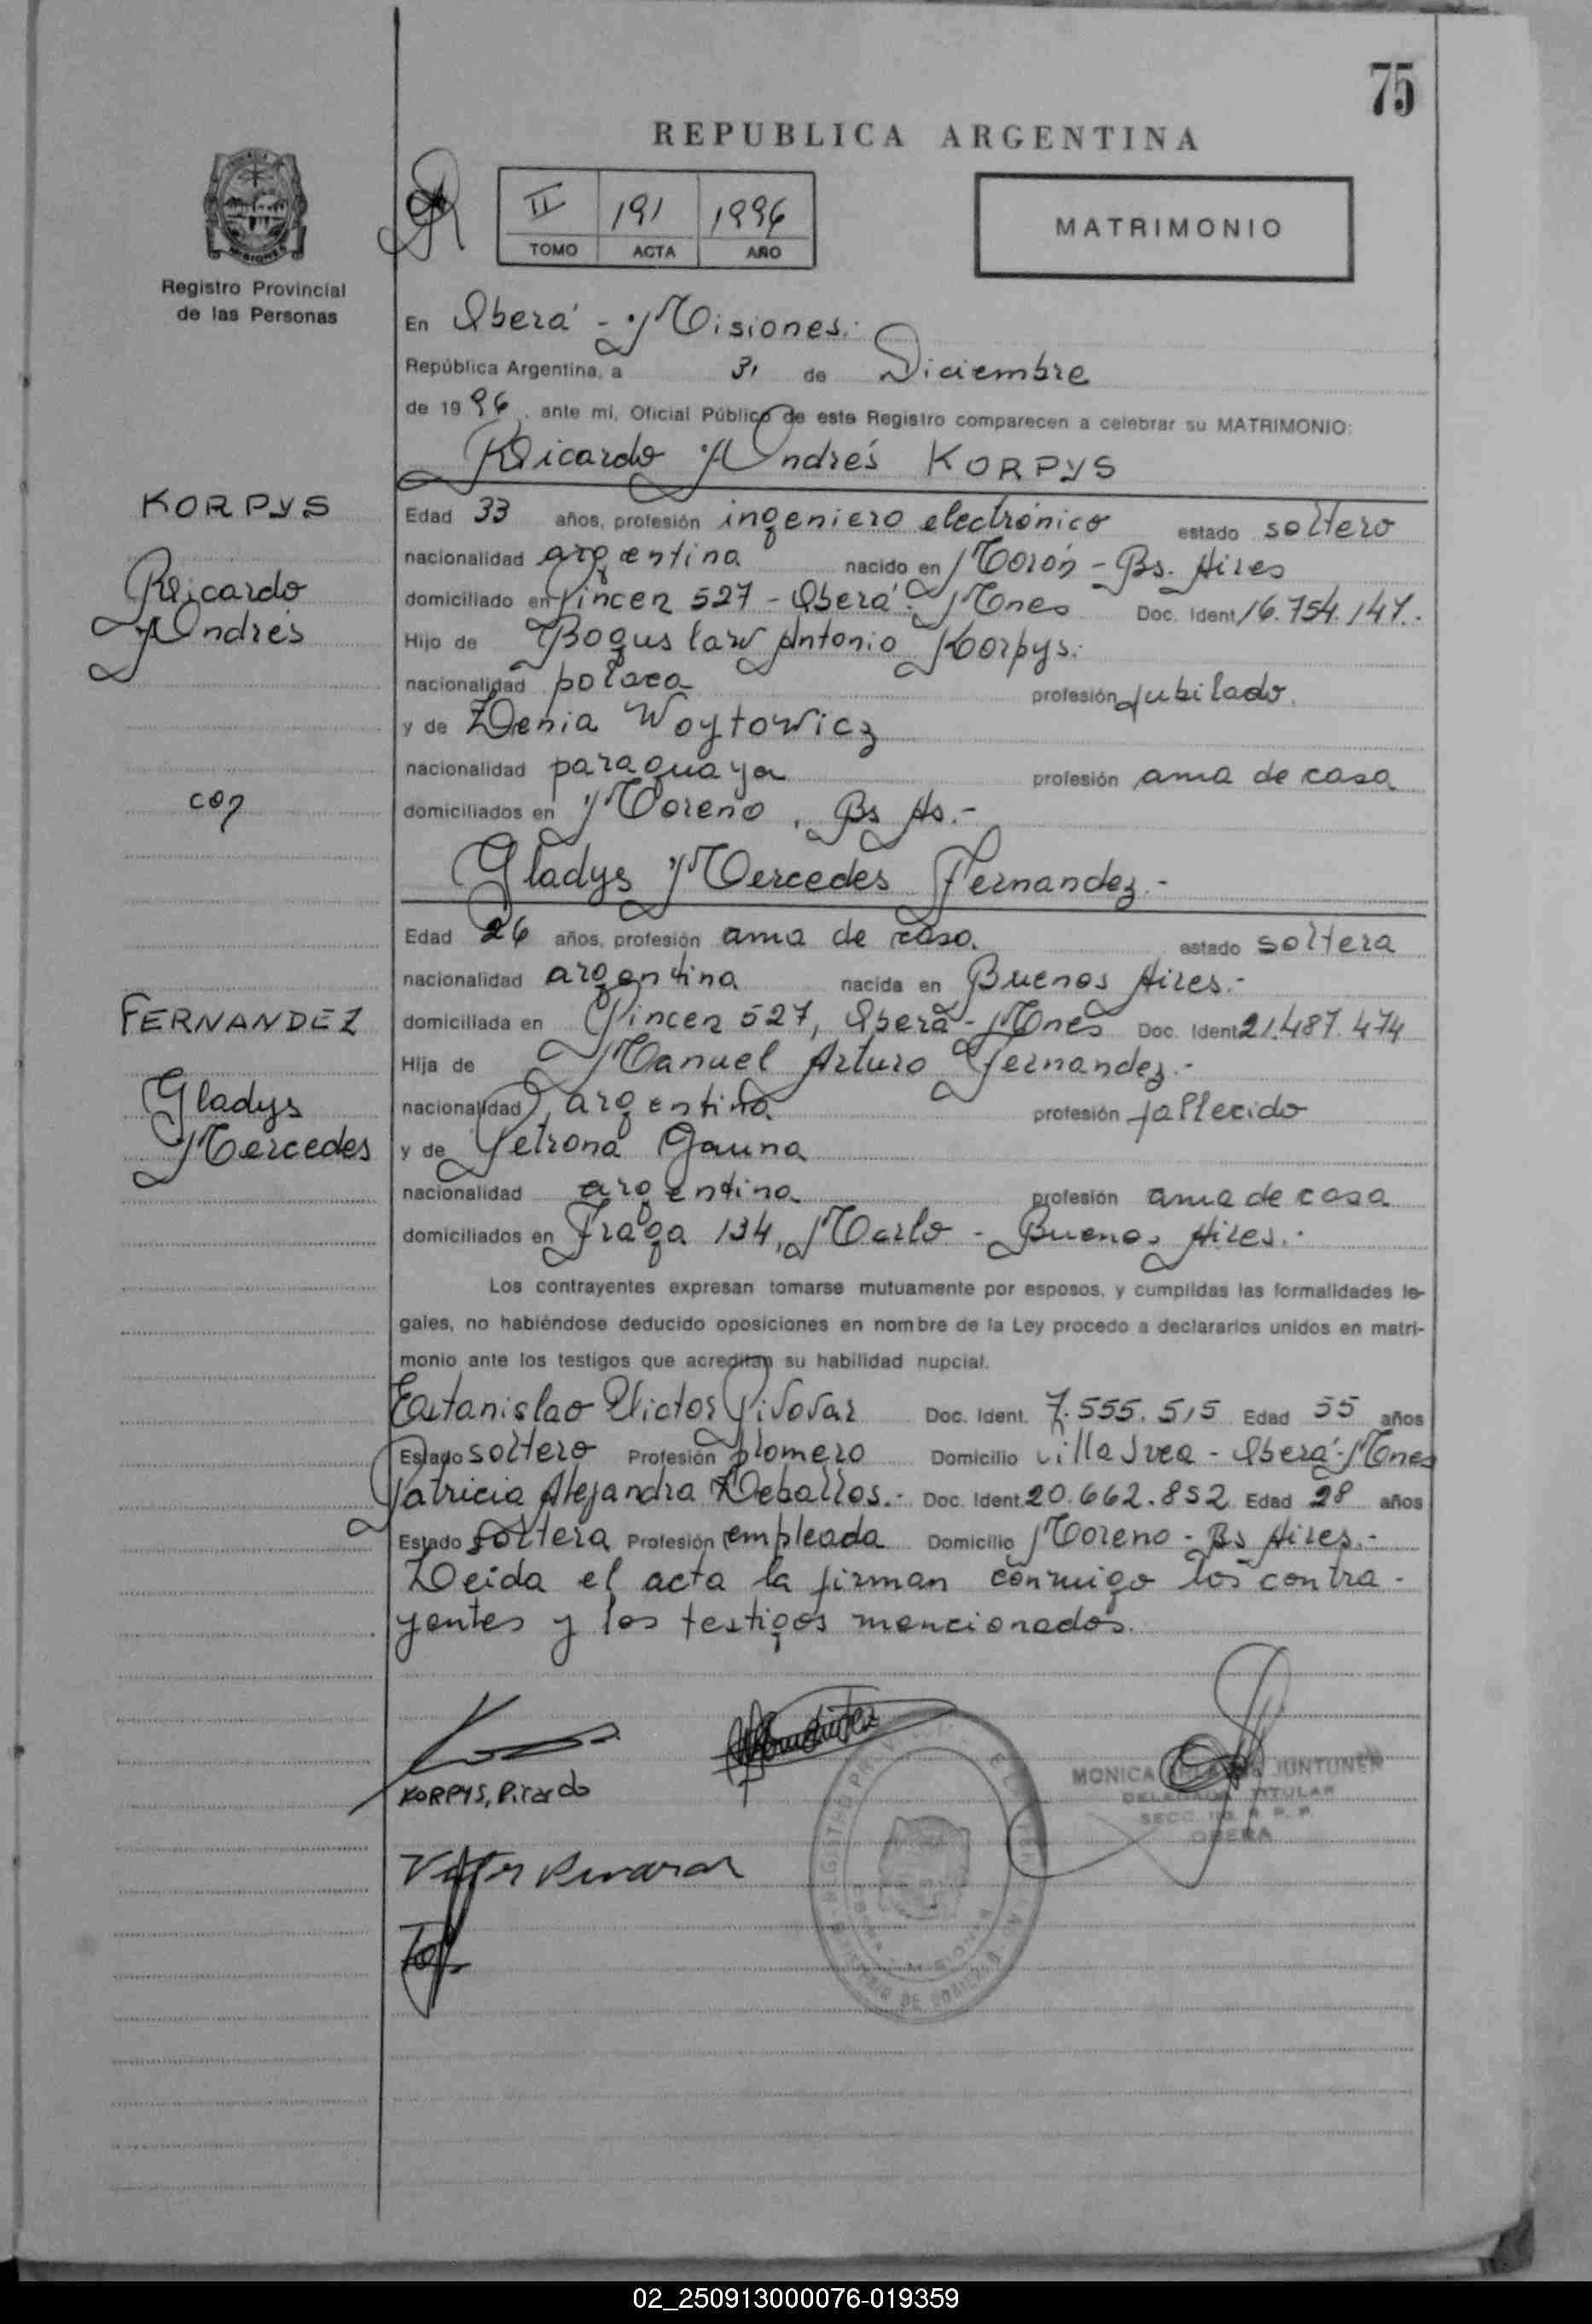 75
REPUBLICA ARGENTINA
II 191 1996
TOMO ACTA AÑO
MATRIMONIO
Registro Provincial
de las Personas
En Oberá - Misiones.
República Argentina, a 31 de Diciembre
de 1996, ante mi, Oficial Público de este Registro comparecen a celebrar su MATRIMONIO:
Ricardo Andrés KORPYS
KORPYS
Edad 33 años, profesión ingeniero electrónico estado soltero
nacionalidad argentina nacido en Morón - Bs. Aires
Ricardo
domiciliado en Pincen 527 - Oberá - Mnes Doc. Ident 16.754.147.-
Andrés
Hijo de Boguslaw Antonio Korpys.
nacionalidad polaca profesión Jubilado.
y de Zenia Woytowicz
nacionalidad paraguaya profesión ama de casa
con
domiciliados en Moreno, Bs As.-
Gladys Mercedes Fernandez.-
Edad 26 años, profesión ama de casa. estado soltera
nacionalidad argentina nacida en Buenos Aires.-
FERNANDEZ
domiciliada en Pincen 527, Oberá - Mnes Doc. Ident 21.487.474
Hija de Manuel Arturo Fernandez.-
Gladys
nacionalidad argentina profesión fallecido
Mercedes
y de Petrona Gauna
nacionalidad argentina profesión ama de casa
domiciliados en Fraga 134, Merlo - Buenos Aires.-
Los contrayentes expresan tomarse mutuamente por esposos, y cumplidas las formalidades le-
gales, no habiéndose deducido oposiciones en nombre de la Ley procedo a declararlos unidos en matri-
monio ante los testigos que acreditan su habilidad nupcial.
Estanislao Victor Pivovar Doc. Ident. 7.555.515 Edad 55 años
Estado soltero Profesión plomero Domicilio villa Svea - Oberá - Mnes
Patricia Alejandra Zeballos.- Doc. Ident. 20.662.852 Edad 28 años
Estado soltera Profesión empleada Domicilio Moreno - Bs Aires.-
Leida el acta la firman conmigo los contra-
yentes y los testigos mencionados.
KORPYS, Ricardo
MONICA JUNTUNEN
DELEGADA TITULAR
SECC. R. P. P.
OBERA
02_250913000076-019359